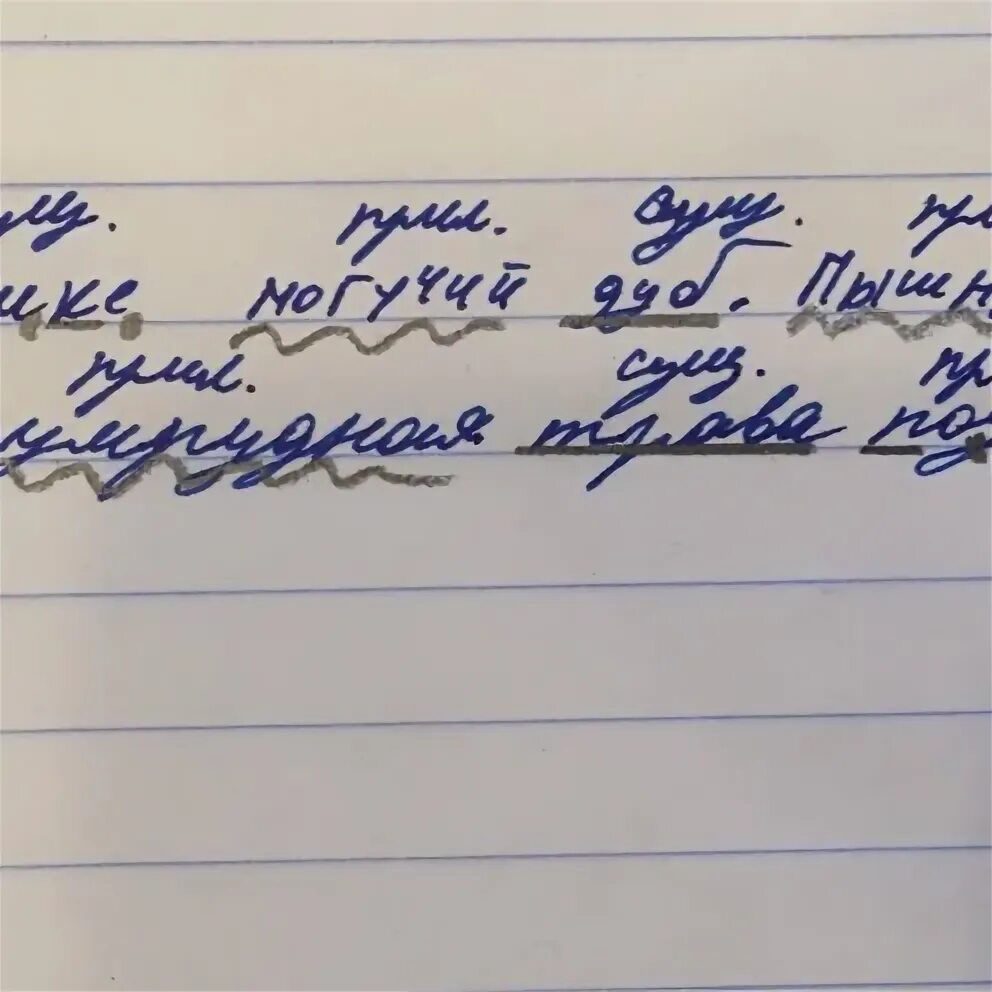 сущ. прил. сущ. пр
ике могучий дуб. Пышн
прил. сущ. пр
умрудная трава по